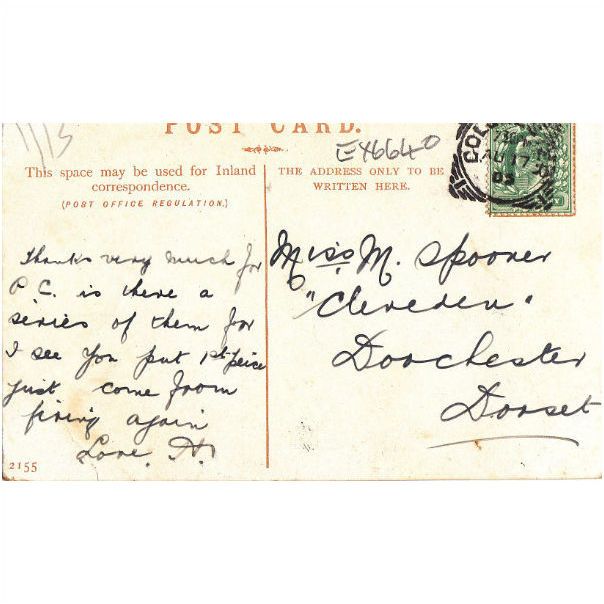 POST CARD.
E46640
This space may be used for Inland
correspondence.
(POST OFFICE REGULATION.)
THE ADDRESS ONLY TO BE
WRITTEN HERE.
Thanks very much for
P.C. is there a
series of them for
I see you put 1st peice
just come from
firing again
Love. A.
Miss M. Spooner
"Clereden"
Dorchester
Dorset
2155